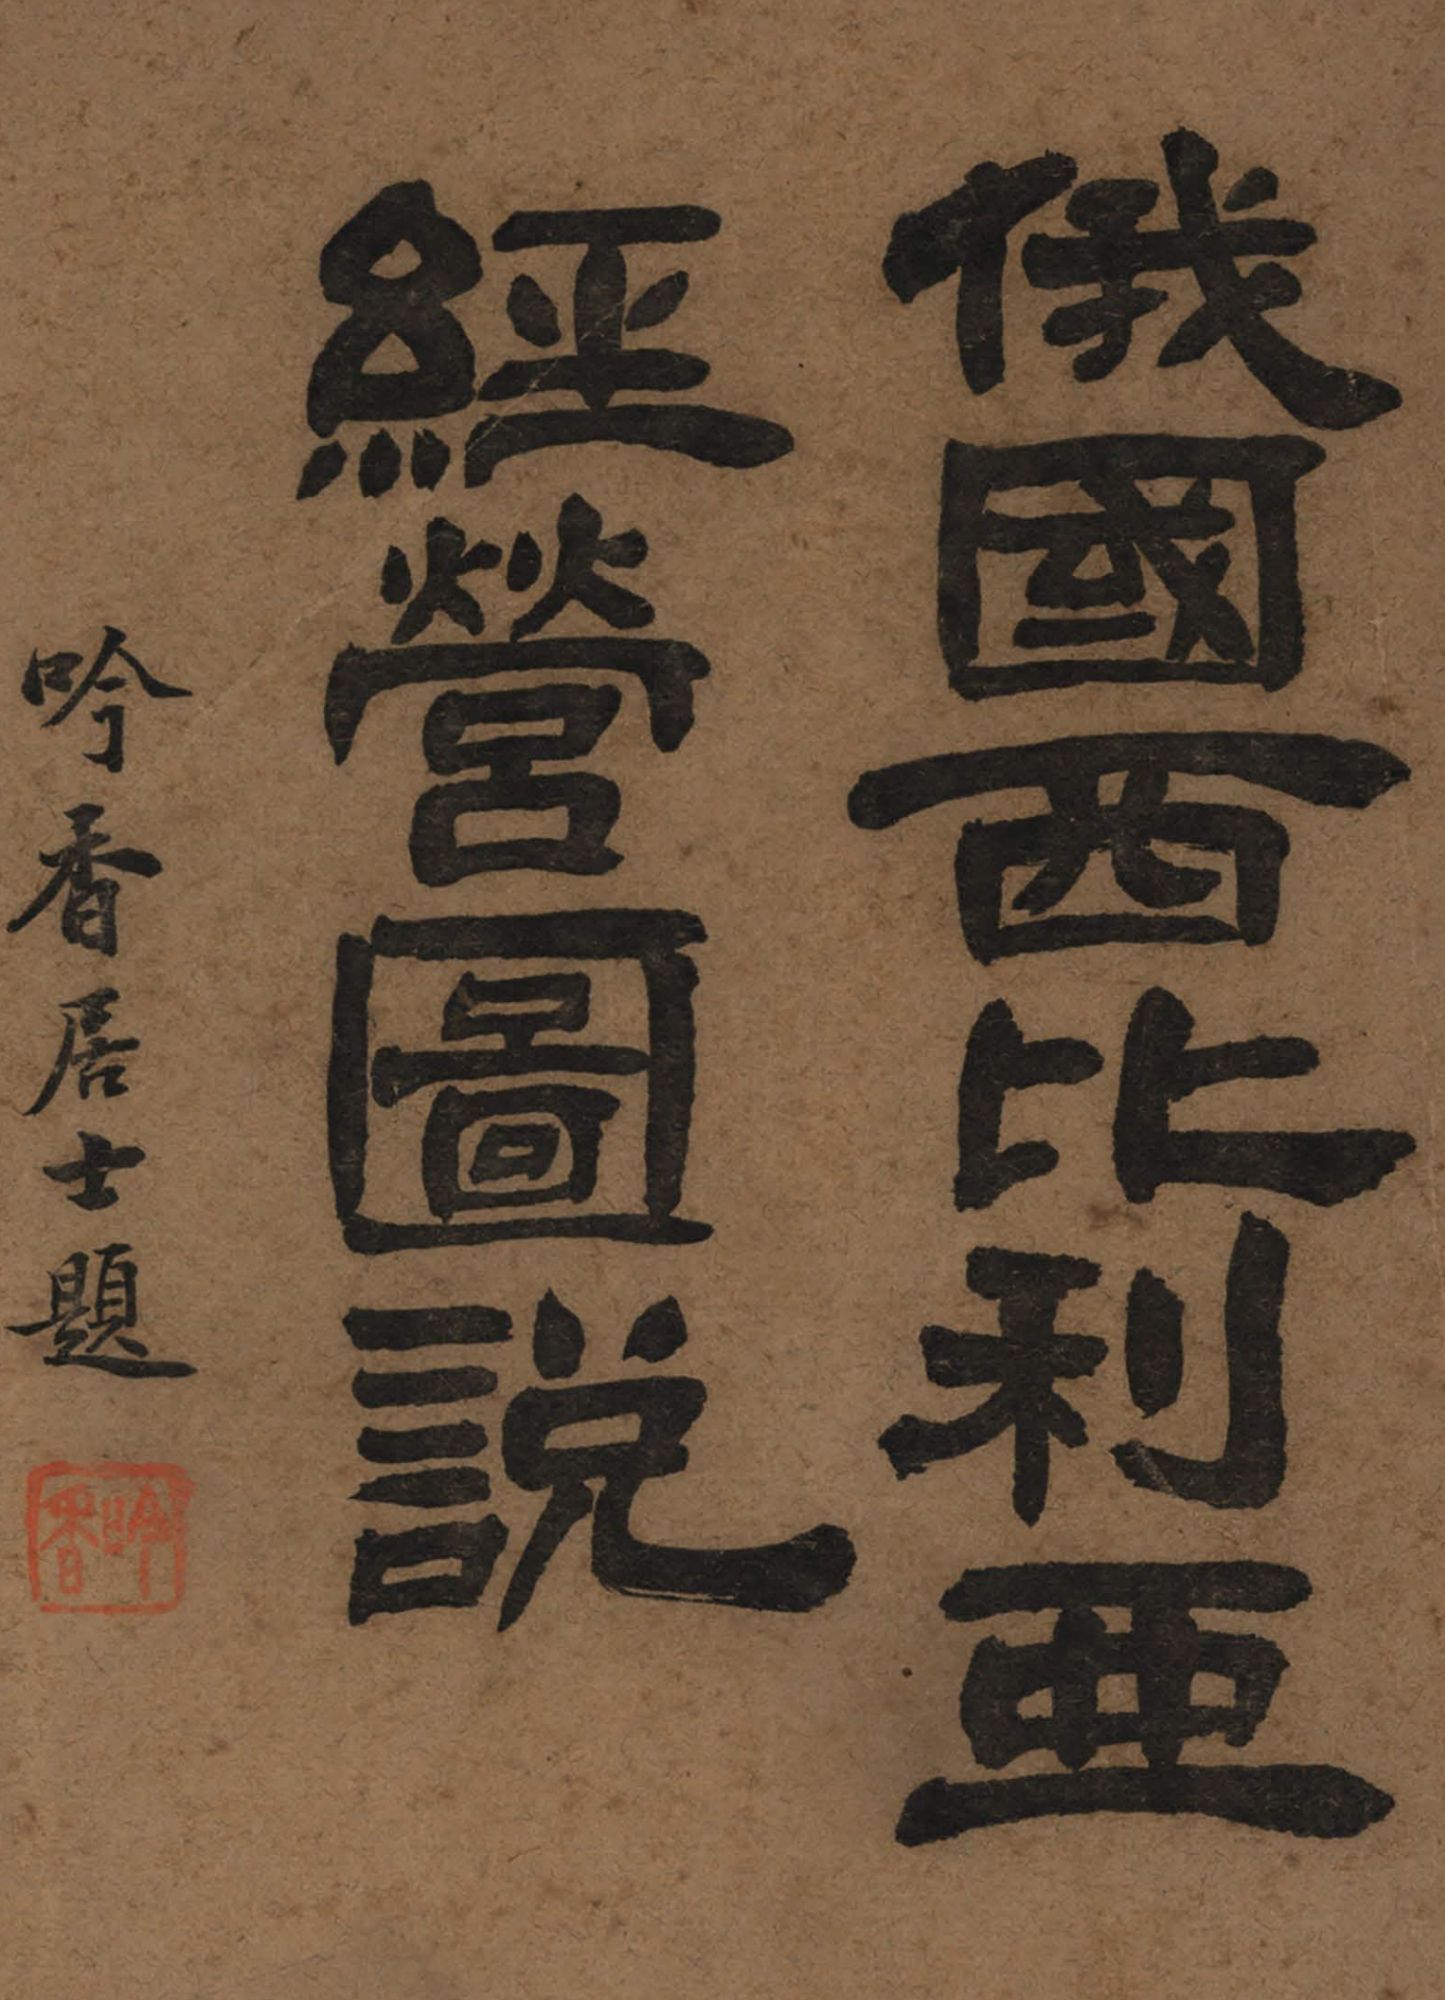 俄國西比利亞
經營圖説
吟香居士題
吟香